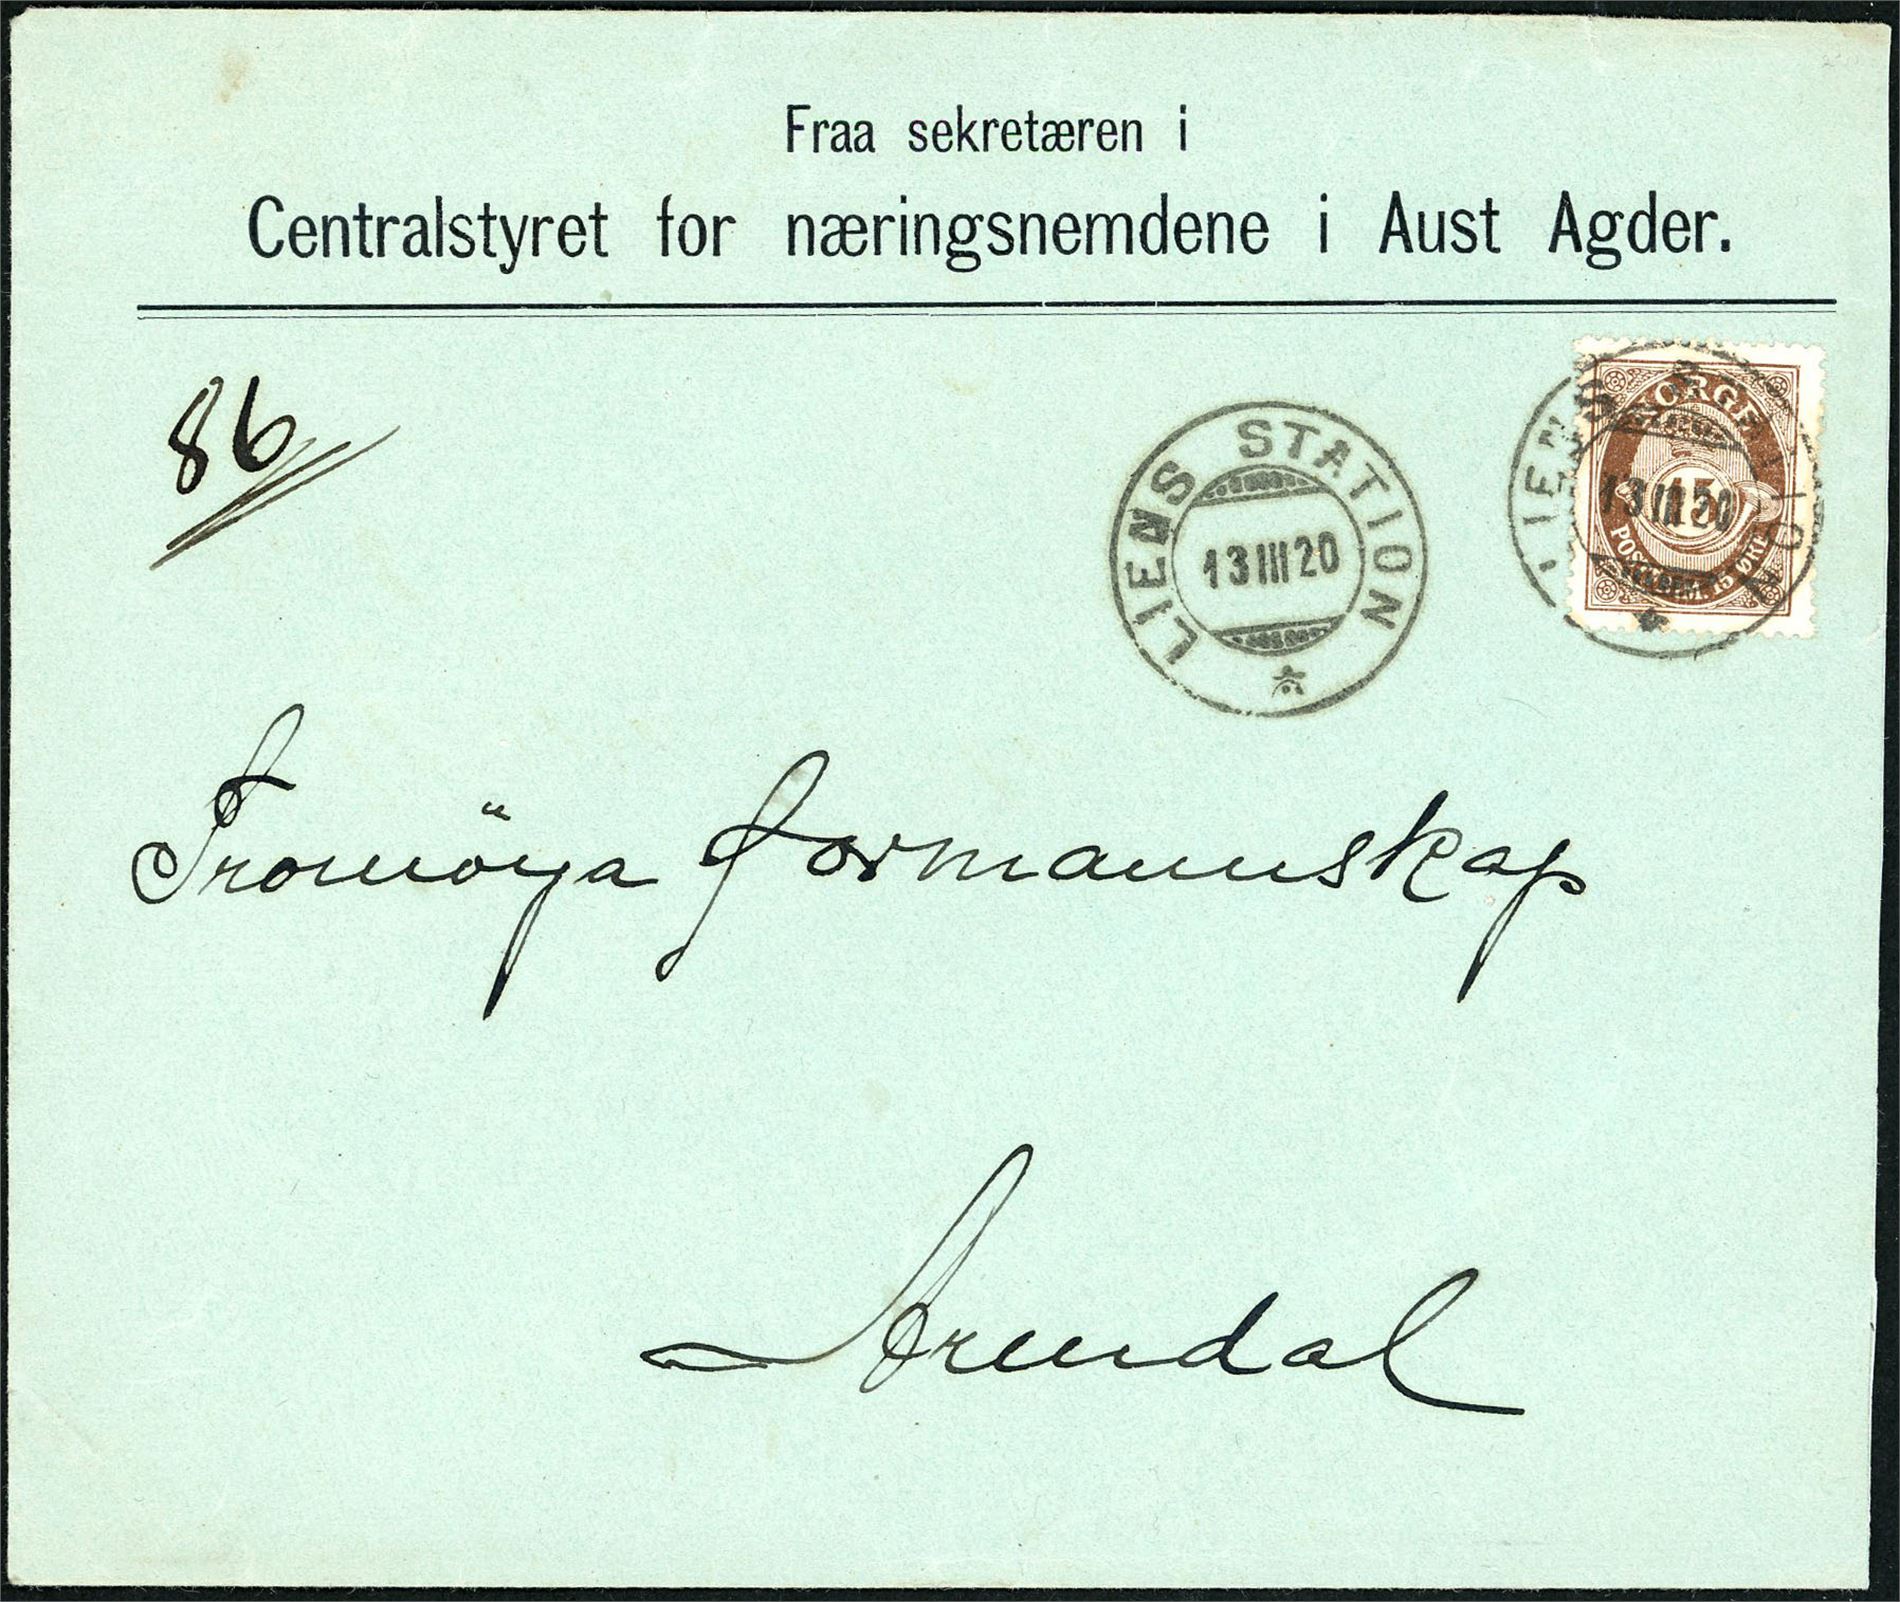 Fraa sekretæren i
Centralstyret for næringsnemdene i Aust Agder.
86
LIENS STATION
13 III 20
LIENS STATION
13 III 20
NORGE
15
POSTFRIM. 15 ØRE
Tromöya formannskap
Arendal